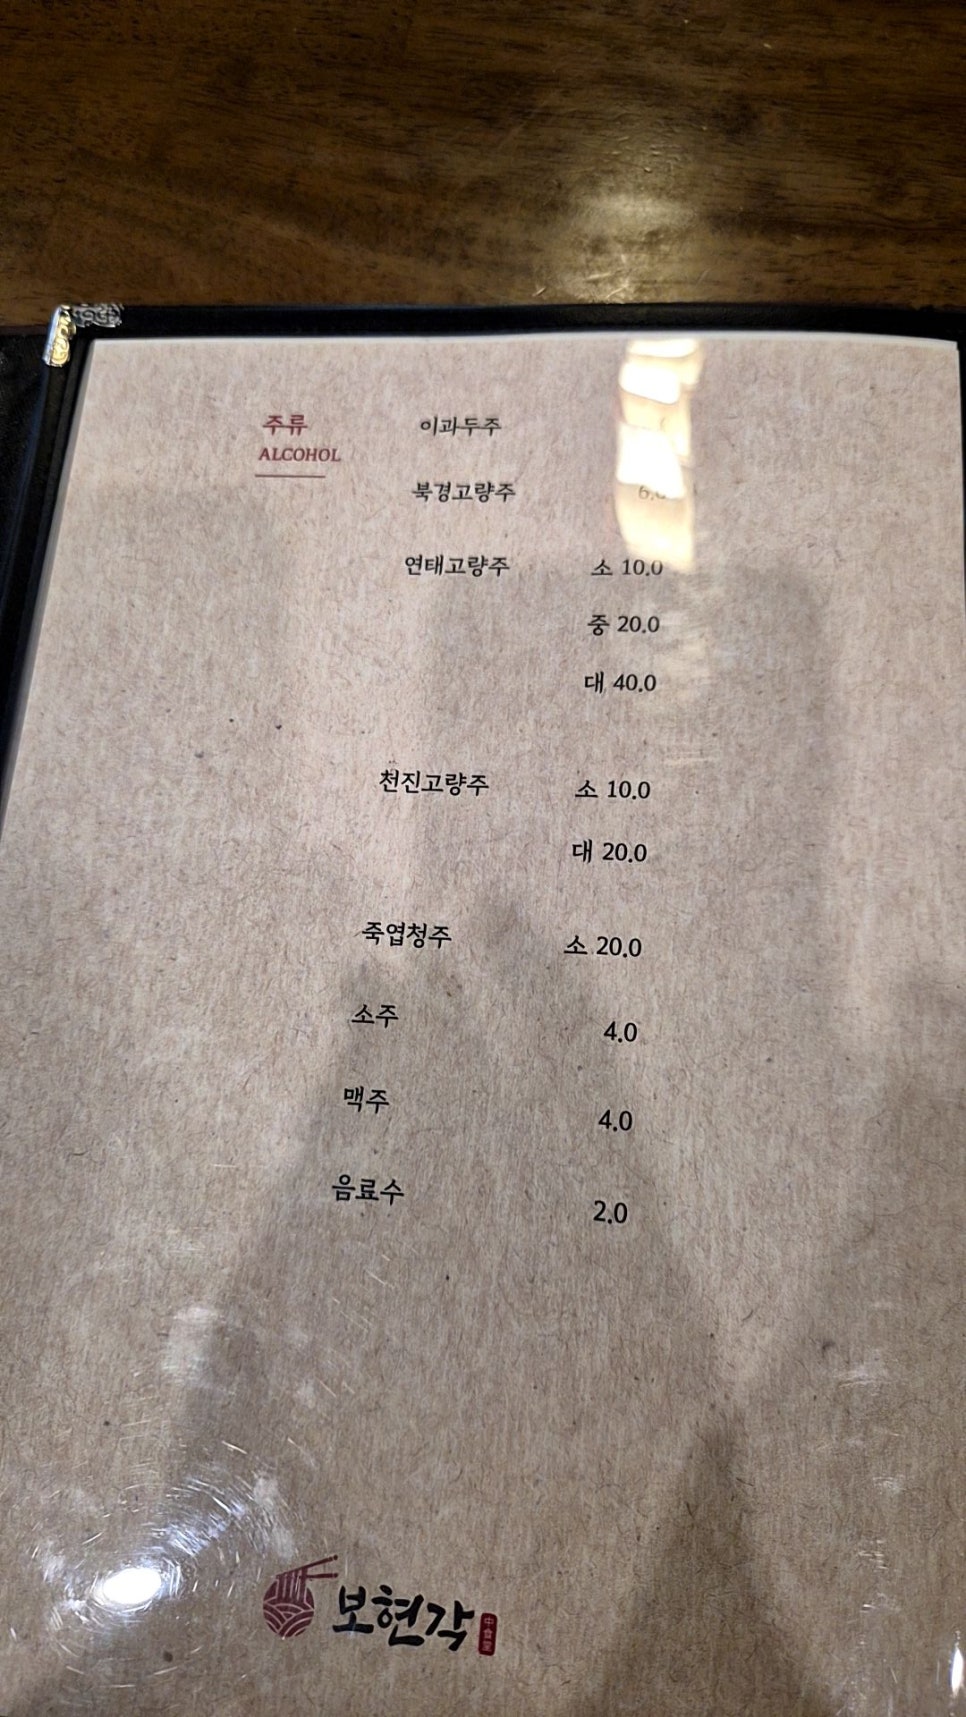 주류
ALCOHOL
이과두주
북경고량주
연태고량주 소 10.0
중 20.0
대 40.0
천진고량주 소 10.0
대 20.0
죽엽청주 소 20.0
소주 4.0
맥주 4.0
음료수 2.0
보현각
中食堂